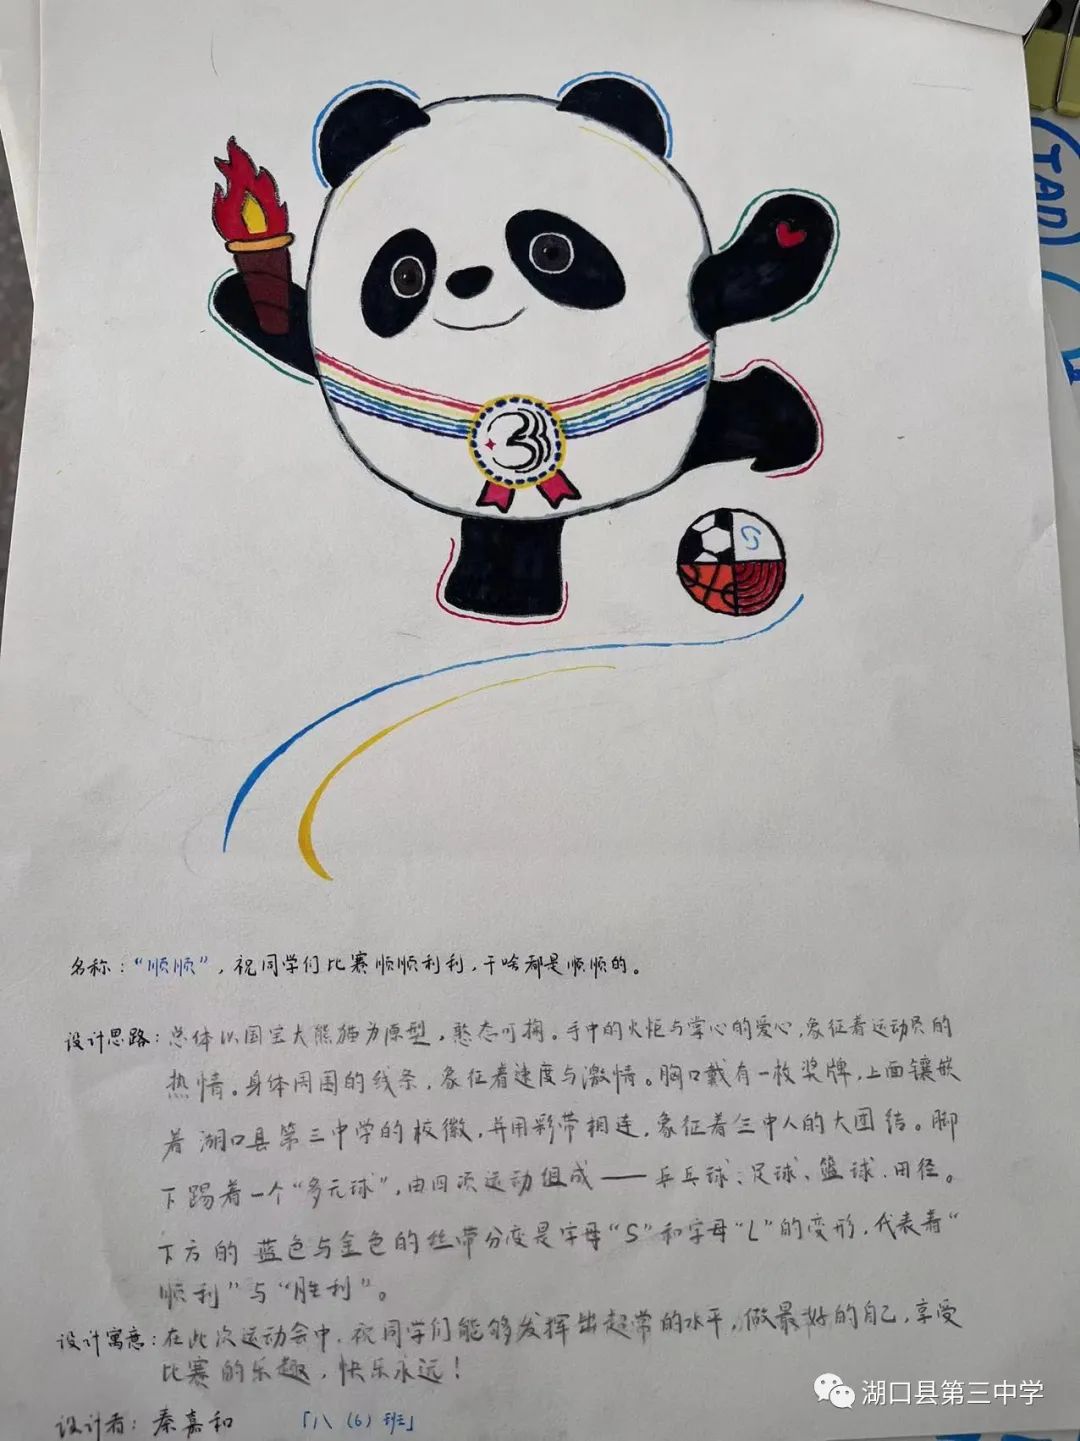 TAD
3
S
名称：“顺顺”，祝同学们比赛顺顺利利，干啥都是顺顺的。
设计思路：总体以国宝大熊猫为原型，憨态可掬。手中的火炬与掌心的爱心，象征着运动员的
热情。身体周围的线条，象征着速度与激情。胸口戴有一枚奖牌，上面镶嵌
着湖口县第三中学的校徽，并用彩带相连，象征着三中人的大团结。脚
下踢着一个“多元球”，由四项运动组成——乒乓球、足球、篮球、田径。
下方的蓝色与金色的丝带分变是字母“S”和字母“L”的变形，代表着“
顺利”与“胜利”。
设计寓意：在此次运动会中，祝同学们能够发挥出超常的水平，做最好的自己，享受
比赛的乐趣，快乐永远！
设计者：秦嘉和 「八（6）班」
湖口县第三中学